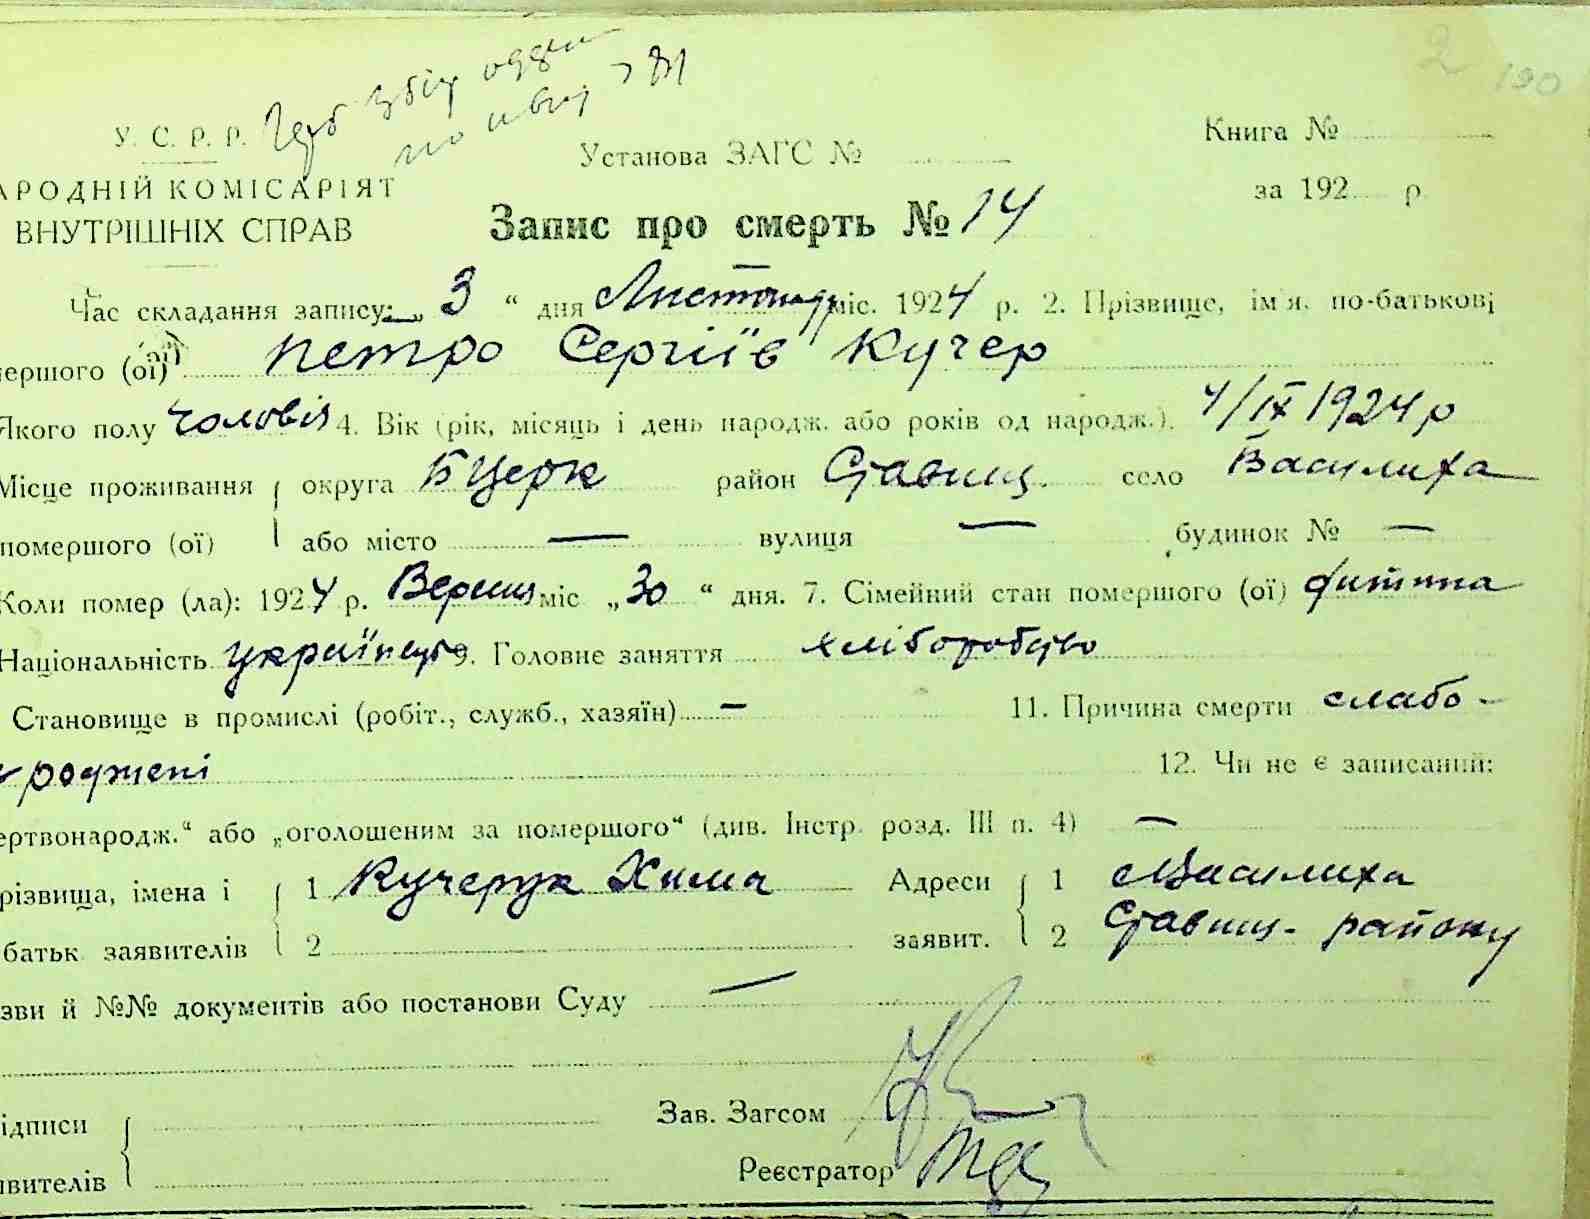 2 190
У. С. Р. Р. збір
Книга №
Установа ЗАГС №
АРОДНІЙ КОМІСАРІЯТ
за 192 р.
ВНУТРІШНІХ СПРАВ
Запис про смерть № 14
Час складання запису: „ 3 “ дня Листопаду міс. 1924 р. 2. Прізвище, ім'я, по-батькові
мершого (ої) Петро Сергіїв Кучер
Якого полу чоловіч 4. Вік (рік, місяць і день народж. або років од народж.). 4/IX 1924 р
Місце проживання округа БЦерк район Ставищ. село Василиха
помершого (ої) або місто — вулиця — будинок № —
Коли помер (ла): 1924 р. Вересня міс „ 30 “ дня. 7. Сімейний стан помершого (ої) дитина
Національність українець 9. Головне заняття хліборобство
Становище в промислі (робіт., служб., хазяїн) — 11. Причина смерти слабо-
роджені 12. Чи не є записаний:
ертвонародж.“ або „оголошеним за помершого“ (див. Інстр. розд. III п. 4) —
різвища, імена і 1 Кучерук Хима Адреси 1 с Василиха
батьк. заявителів 2 заявит. 2 Ставищ- району
зви й №№ документів або постанови Суду —
ідписи Зав. Загсом
явителів Реєстратор